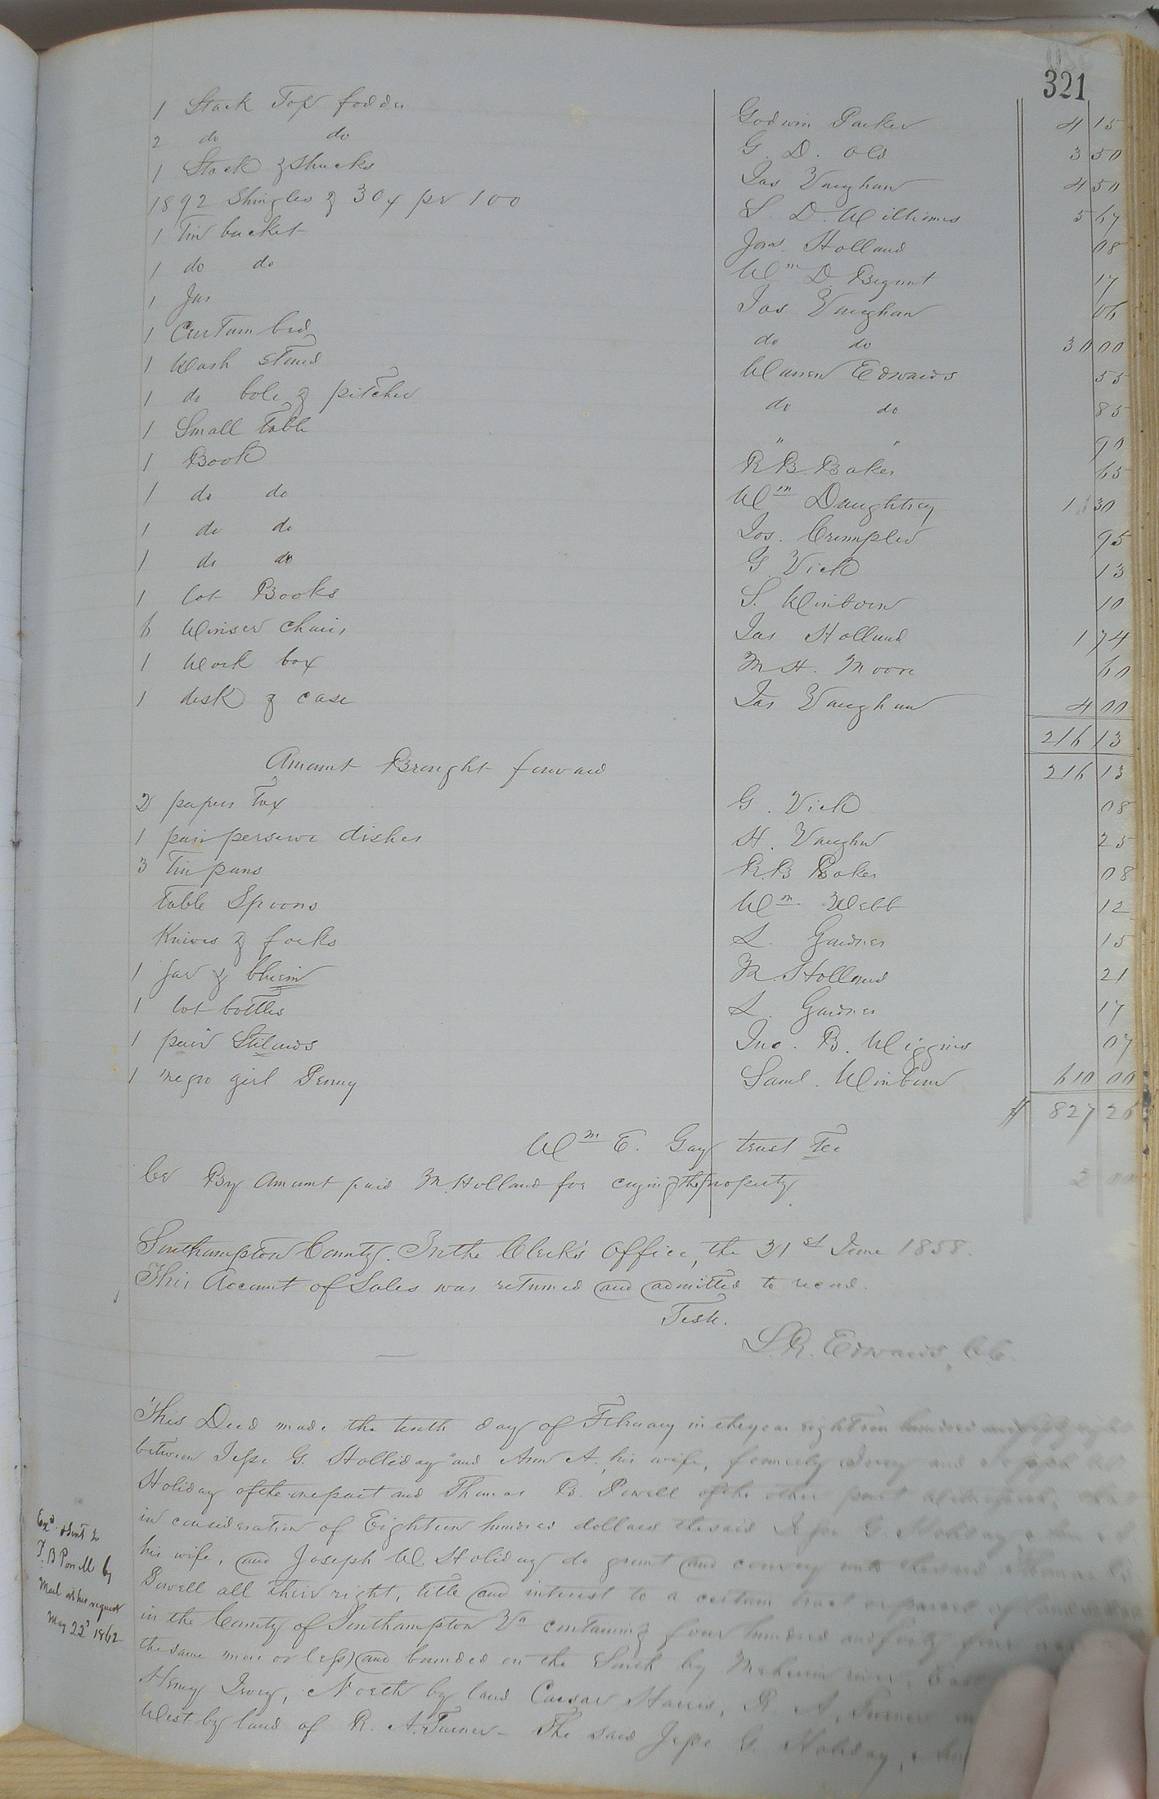 321
1 Stack Top fodder Godwin Parker 4 15
2 do do G. D. Old 3 50
1 Stack & Shucks Jas Vaughan 4 50
1892 Shingles & 30¢ pr 100 S. D. Williams 5 67
1 Tin bucket Jas Holland 08
1 do do Wm D 17
1 Jar Jas Vaughan 06
1 Curtain bed do do 30 00
1 Wash stand Warren Edwards 55
1 do bole & pitcher do do 85
1 Small Table " " 90
1 Book R B Baker 65
1 do do Wm Daughtrey 1 30
1 do do Jos. Crumpler 95
1 do do G Vick 13
1 lot Books S. Winborn 10
6 Winser chairs Jas Holland 1 74
1 Work box M H. Moore 60
1 desk & case Jas Vaughan 4 00
216 13
Amount Brought forward 216 13
2 papers Tax G. Vick 08
1 pair perserve dishes H. Vaughn 25
3 Tin pans R B Baker 08
Table Spoons Wm Webb 12
Knives & forks L. Gardner 15
1 Jar & M. Holland 21
1 lot bottles L. Gardner 17
1 pair Stilards Jno. B. Wiggins 07
1 negro girl Penny Saml. Winborn 610 00
$ 827 26
Wm E. Gay trust Tee
Cr By Amount paid M. Holland for crying the property 2 00
Southampton County. In the Clerk's Office, the 21st June 1858.
This Account of Sales was returned and admitted to record.
Test.
L. R. Edwards, C C.
This Deed made the tenth day of February in the year eighteen hundred and fifty eight
between Jesse G. Holleday and Ann A, his wife, formerly Ivey and Joseph W
Holiday of the one part and Thomas B. Powell of the other part Witnesseth, that
in consideration of Eighteen hundred dollars the said Jesse G. Holiday, & Ann A
his wife, and Joseph W Holiday do grant and convey unto the said Thomas B
Powell all their right, title and interest to a certain tract or parcel of land
in the County of Southampton Va containing four hundred and forty four
the same more or less) and bounded on the South by Meherrin river, East
Henry Ivey, North by land Caesar Harris, R. A. Turner
West by land of R. A. Turner - The said Jesse G. Holiday, &
Exd & sent to
T. B Powell by
Mail at his request
May 22d 1862